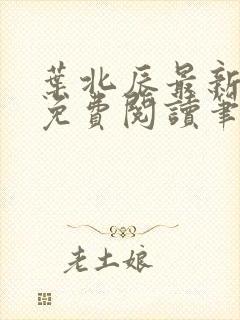 葉北辰最新
免費閱讀筆
老土娘